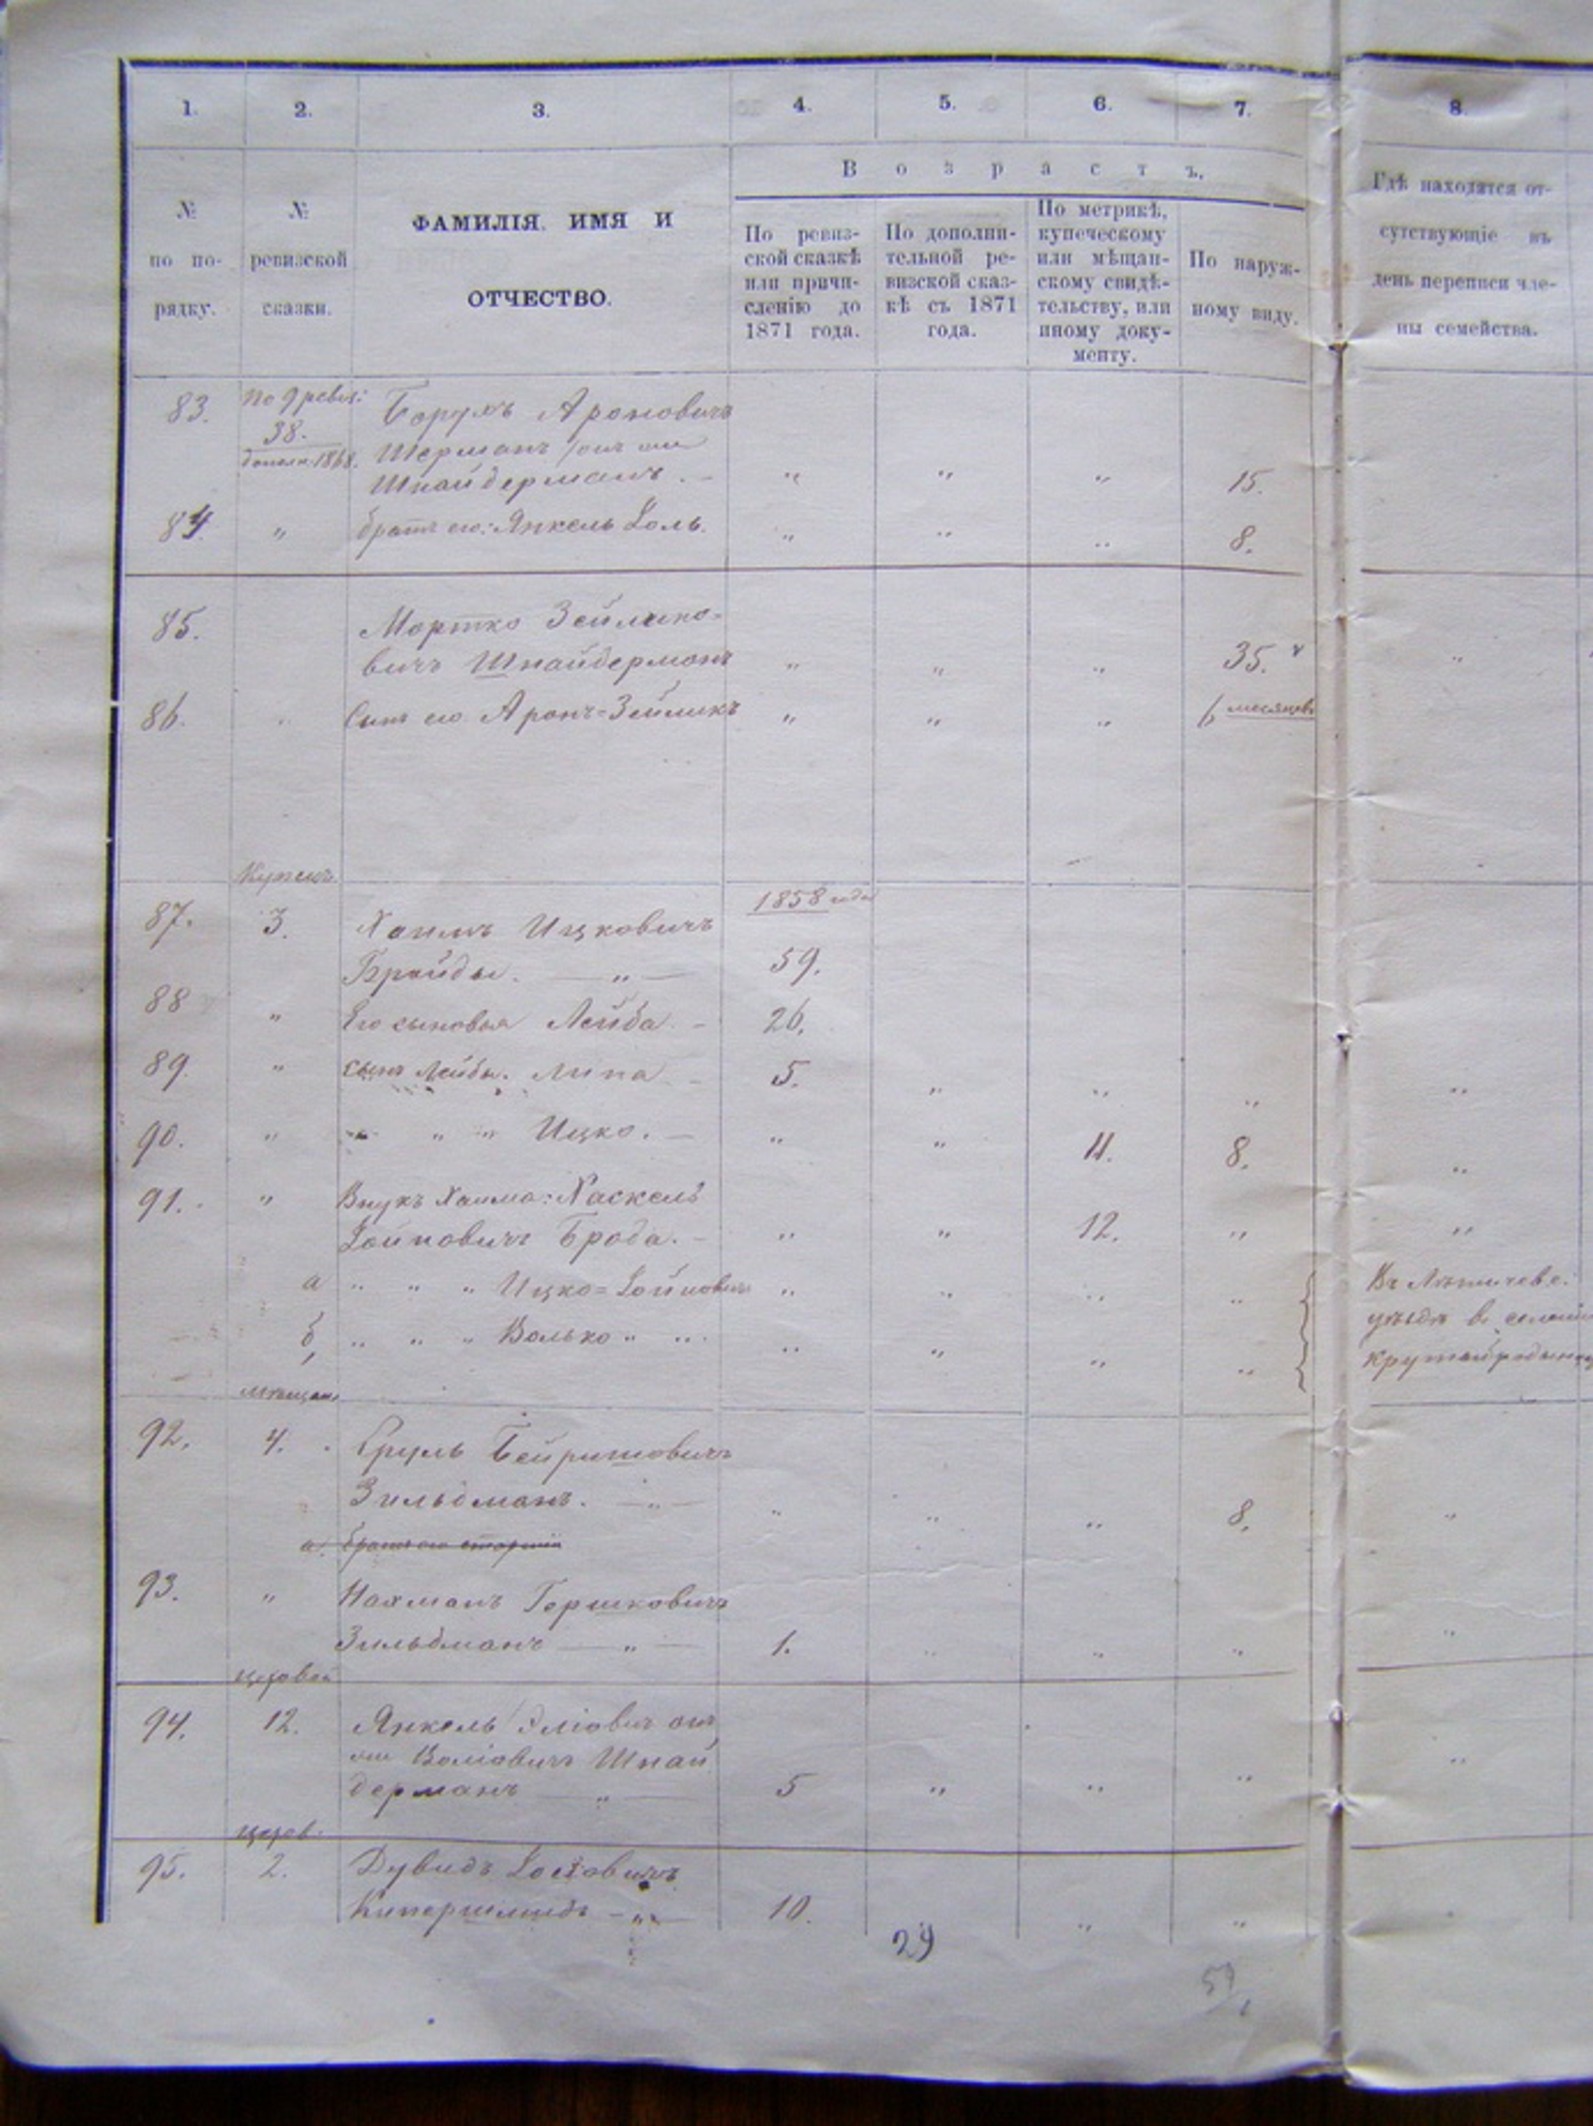 1. 2. 3. 4. 5. 6. 7. 8.
В о з р а с т ъ.
№ по порядку.
№ ревизской сказки.
ФАМИЛІЯ, ИМЯ И
ОТЧЕСТВО.
По ревиз-
ской сказкѣ
или причи-
сленію до
1871 года.
По дополни-
тельной ре-
визской сказ-
кѣ съ 1871
года.
По метрикѣ,
купеческому
или мѣщан-
скому свидѣ-
тельству, или
иному доку-
менту.
По наруж-
ному виду.
Гдѣ находятся от-
сутствующіе въ
день переписи чле-
ны семейства.
83. По 9 ревиз: Борухъ Ароновичъ
38. Шерманъ
дополн. 1868. Шнайдерманъ. – „ „ „ 15.
84. „ братъ его: Янкель Іоль. „ „ „ 8.
85. Мортко Зейлико-
вичъ Шнайдерманъ „ „ „ 35. „
86. „ Сынъ его Аронъ=Зейликъ „ „ „ 6 месяцевъ
Купецъ
87. 3. Хаимъ Ицковичъ 1858 года
Брайды. — „ — 59.
88 „ Его сыновья Лейба – 26.
89. „ сынъ Лейбы. Липа – 5. „ „ „ „
90. „ „ „ „ Ицко. – „ „ 11. 8. „
91. „ Внукъ Хаима: Хаскель
Іойновичъ Брода. – „ „ 12. „ „
а „ „ „ Ицко=Іойновичъ „ „ „ „ Въ Летичев.
б, „ „ „ Волько „ „ „ „ „ „ уѣздѣ в селеніи
мѣщан.
92. 4. Сруль Бейришовичъ
Зильбманъ. — „ — „ „ „ 8. „
а. братъ его старшій
93. „ Нахманъ Гершковичъ
Зильбманъ — „ — 1. „ „ „ „
цеховой
94. 12. Янкель Эліовичъ онъ
же Воліовичъ Шнай
дерманъ — „ — 5 „ „ „ „
цехов.
95. 2. Дувидъ Іосіовичъ
Кипершмидъ – „ – 10. „ „
29
57